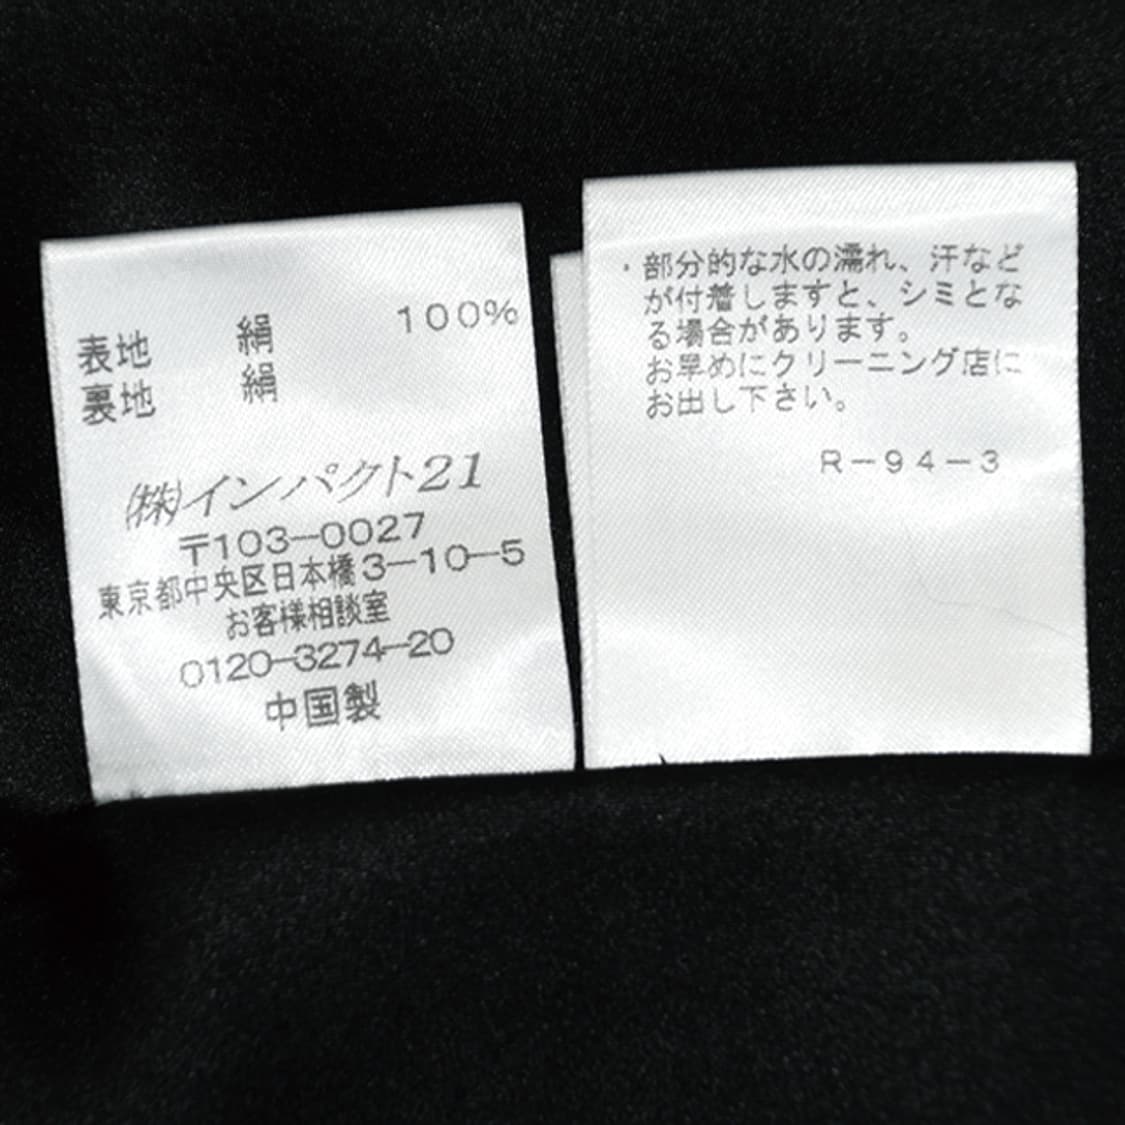 表地 絹 100%
裏地 絹
(株)インパクト21
〒103-0027
東京都中央区日本橋3-10-5
お客様相談室
0120-3274-20
中国製
・部分的な水の濡れ、汗など
が付着しますと、シミとな
る場合があります。
お早めにクリーニング店に
お出し下さい。
R-94-3